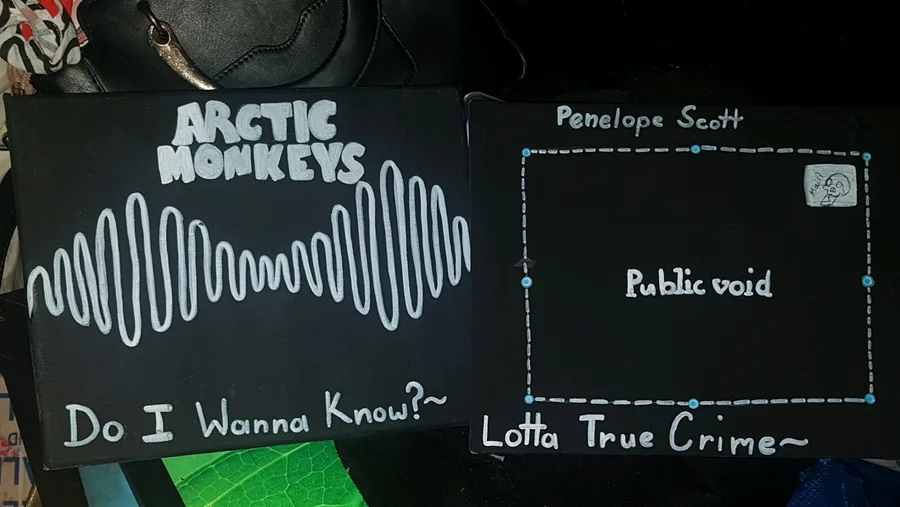 ARCTIC
MONKEYS
Do I Wanna Know?~
Penelope Scott
Public void
Lotta True Crime~